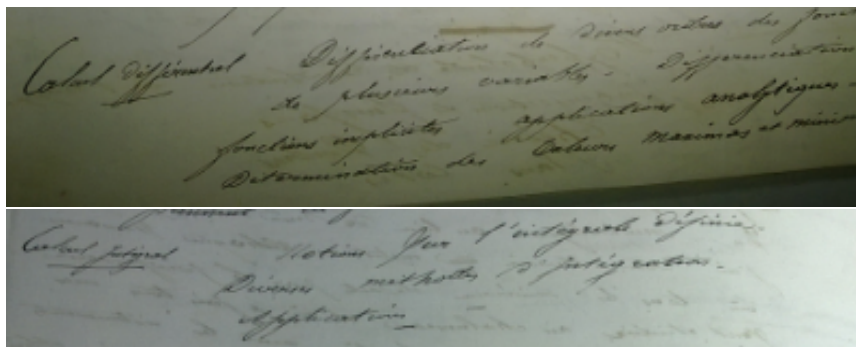 Calcul différentiel Différentiation de divers ordres des fonc
de plusieurs variables. Différenciation
fonctions implicites applications analytiques.
Détermination des Valeurs maximas et minim
Calcul Intégral Notions sur l'intégrale définie.
Diverses méthodes d'intégration.
Applications